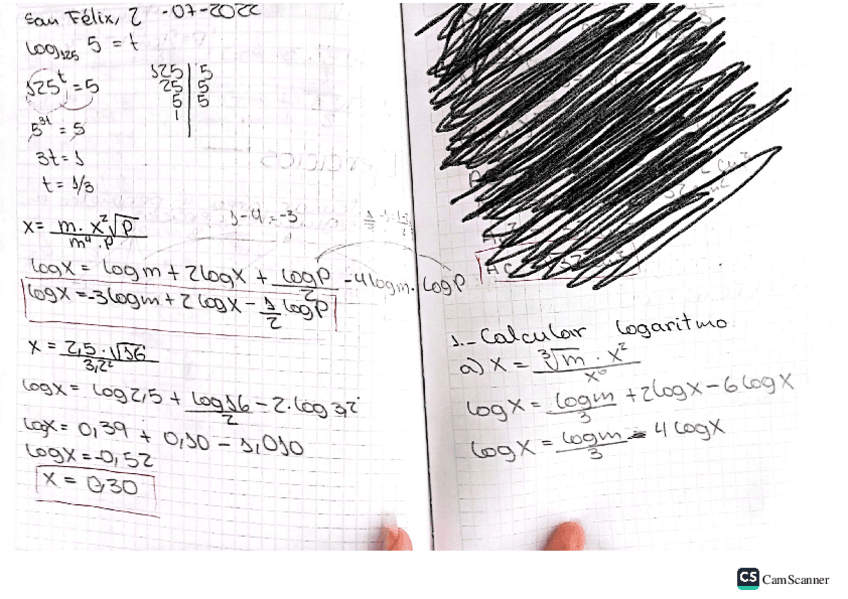 San Félix, 2 -07-2022
log₁₂₅ 5 = t
125ᵗ = 5
125 | 5
25 | 5
5 | 5
1
5³ᵗ = 5
3t = 1
t = 1/3
x = m · x²√p / m⁴ · p
1-4 = -3
log x = log m + 2 log x + log p / 2 - 4 log m · log p
log x = -3 log m + 2 log x - 1/2 log p
x = 2,5 · √16 / 3,2²
log x = log 2,5 + log 16 / 2 - 2 · log 3,2
log x = 0,39 + 0,10 - 1,010
log x = -0,52
x = 0,30
1.- Calcular logaritmo
a) x = ³√m · x² / x⁶
log x = log m / 3 + 2 log x - 6 log x
log x = log m / 3 - 4 log x
CS CamScanner